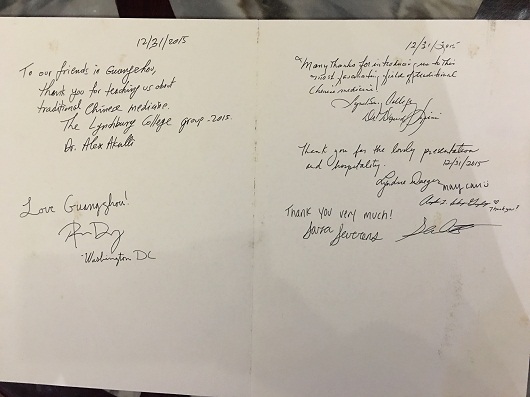 12/31/2015
To our friends in Guangzhou,
thank you for teaching us about
traditional Chinese medicine.
The Lynchburg College group - 2015.
Dr. Alex
Love Guangzhou!
Washington DC
12/31/2015
Many thanks for introducing us to this
most fascinating field of traditional
Chinese medicine!
Lynchburg College
Thank you for the lovely presentation
and hospitality. 12/31/2015
Thank you!
Thank you very much!
Sara Severens